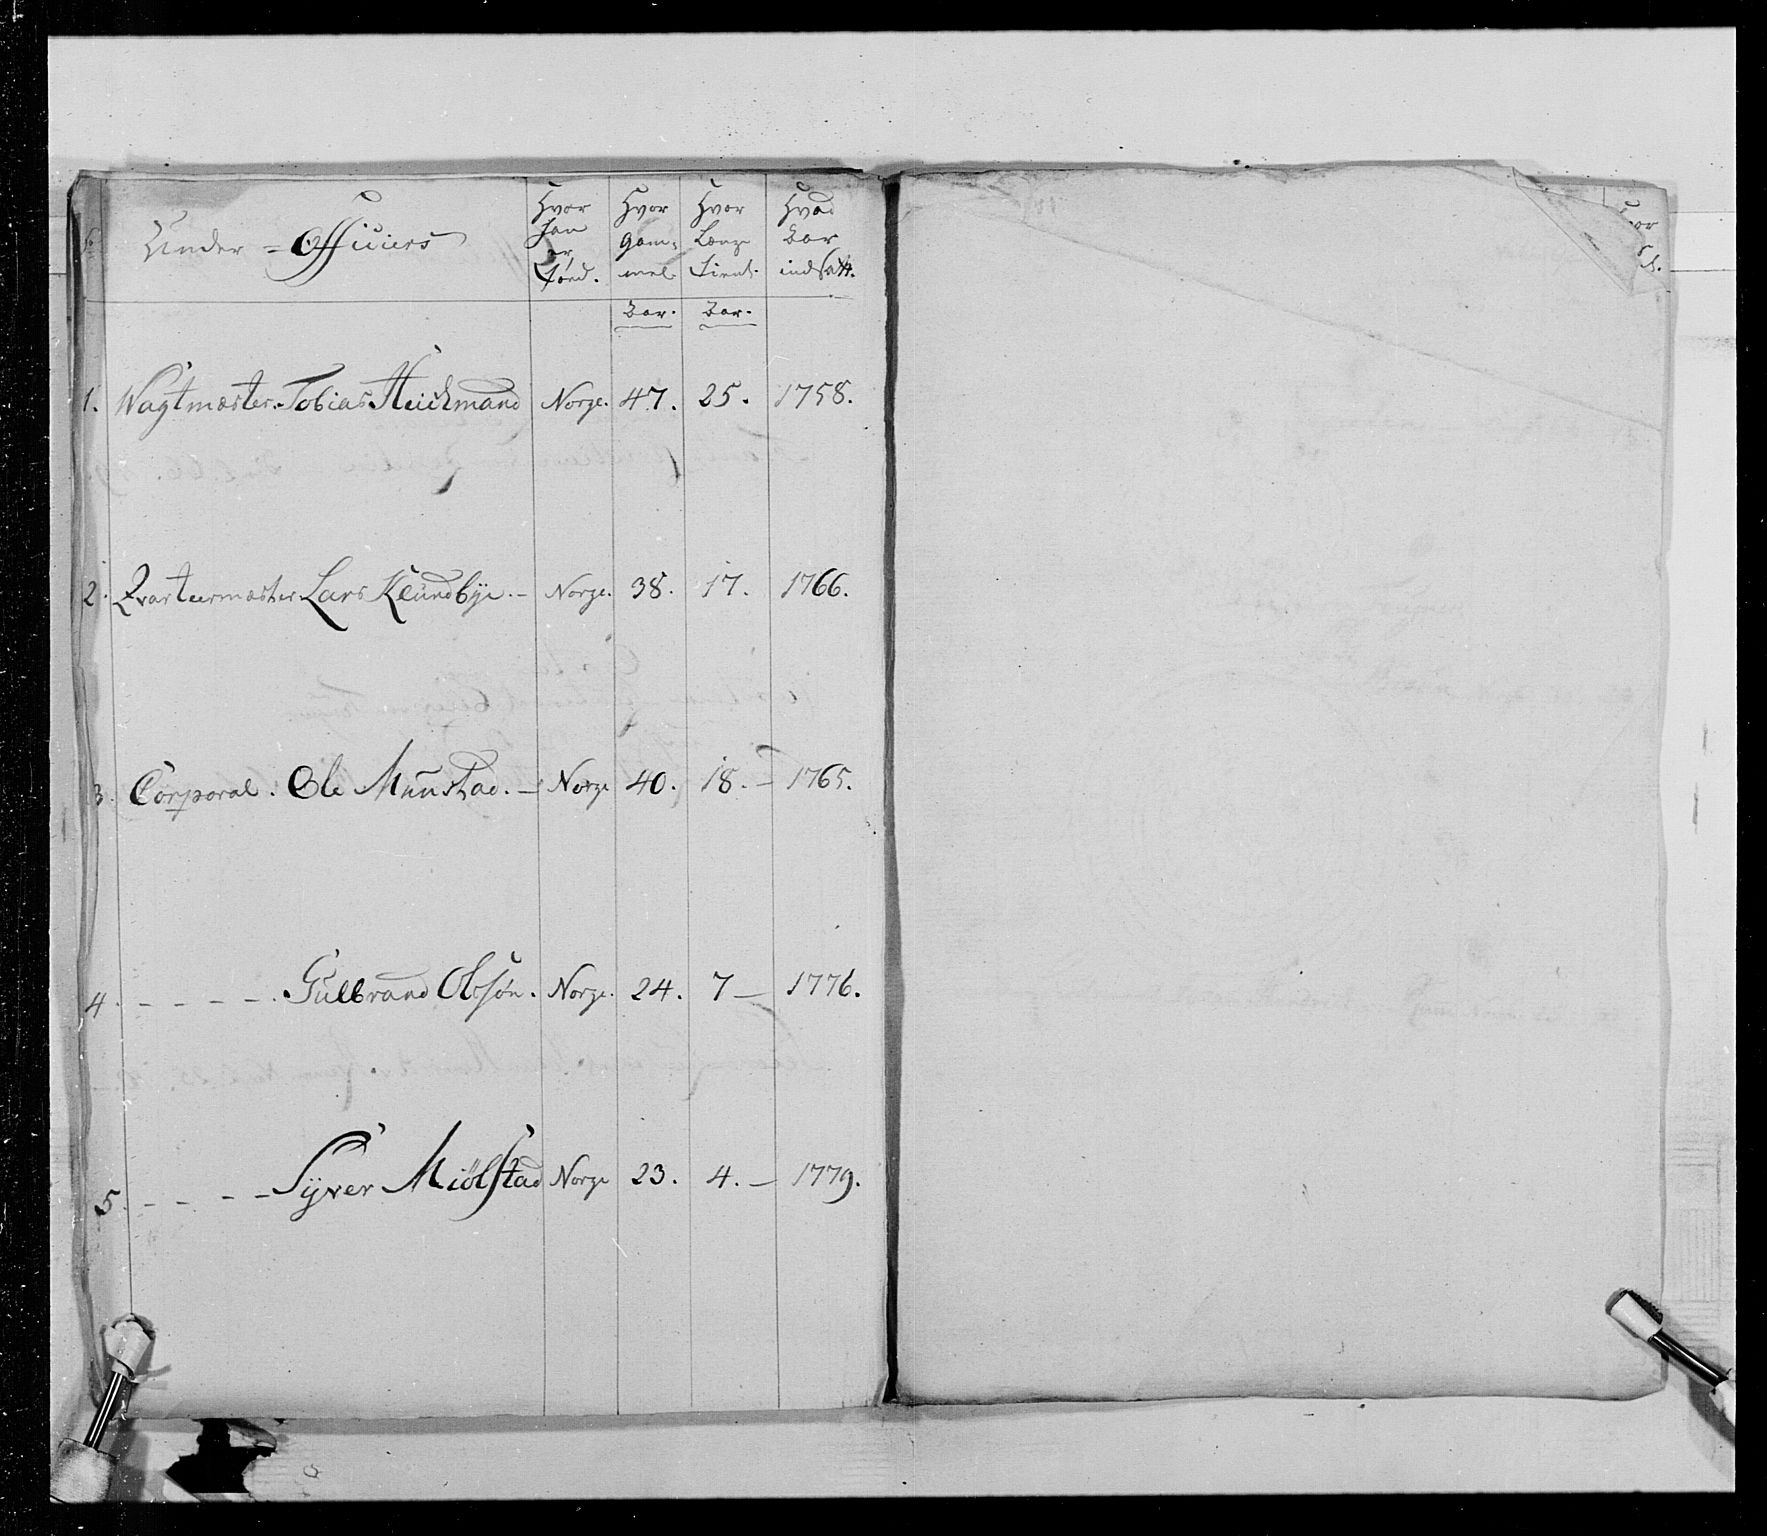 Under = Officiers
Hvor han er Fød.
Hvor Gam= mel
Hvor Længe Tient.
Hvad Aar indsatt.
Aar. Aar.
1. Wagtmæster. Tobias Heichmand Norge. 47. 25. 1758.
2. Qvarteermæster Lars Klundbye. – Norge. 38. 17. 1766.
3. Corporal. Ole Munstad. – Norge 40. 18. – 1765.
4. – – – – –. Gulbrand Olsøn. Norge. 24. 7 – 1776.
5. – – – – Syver Miölstad Norge 23. 4. – 1779.